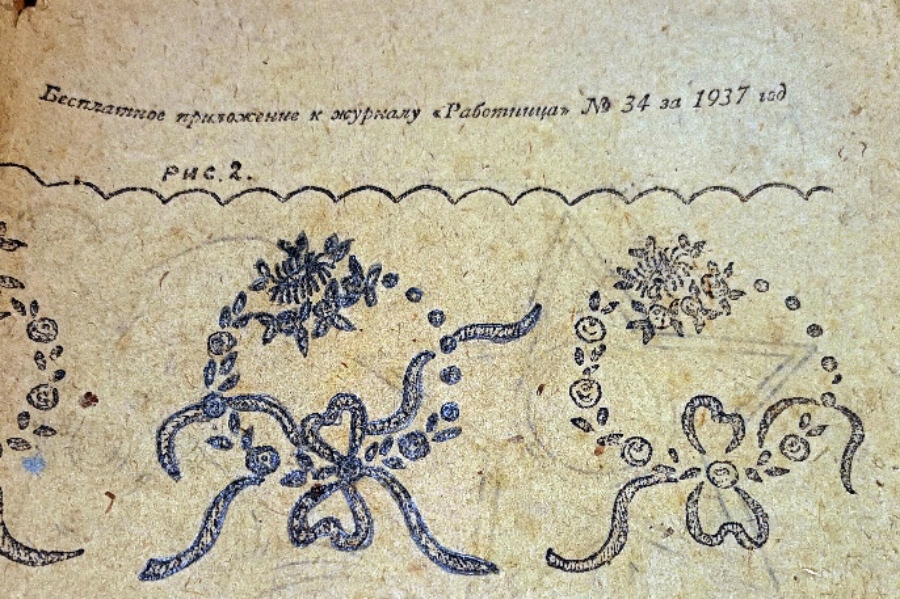 Бесплатное приложение к журналу «Работница» № 34 за 1937 год
Рис. 2.